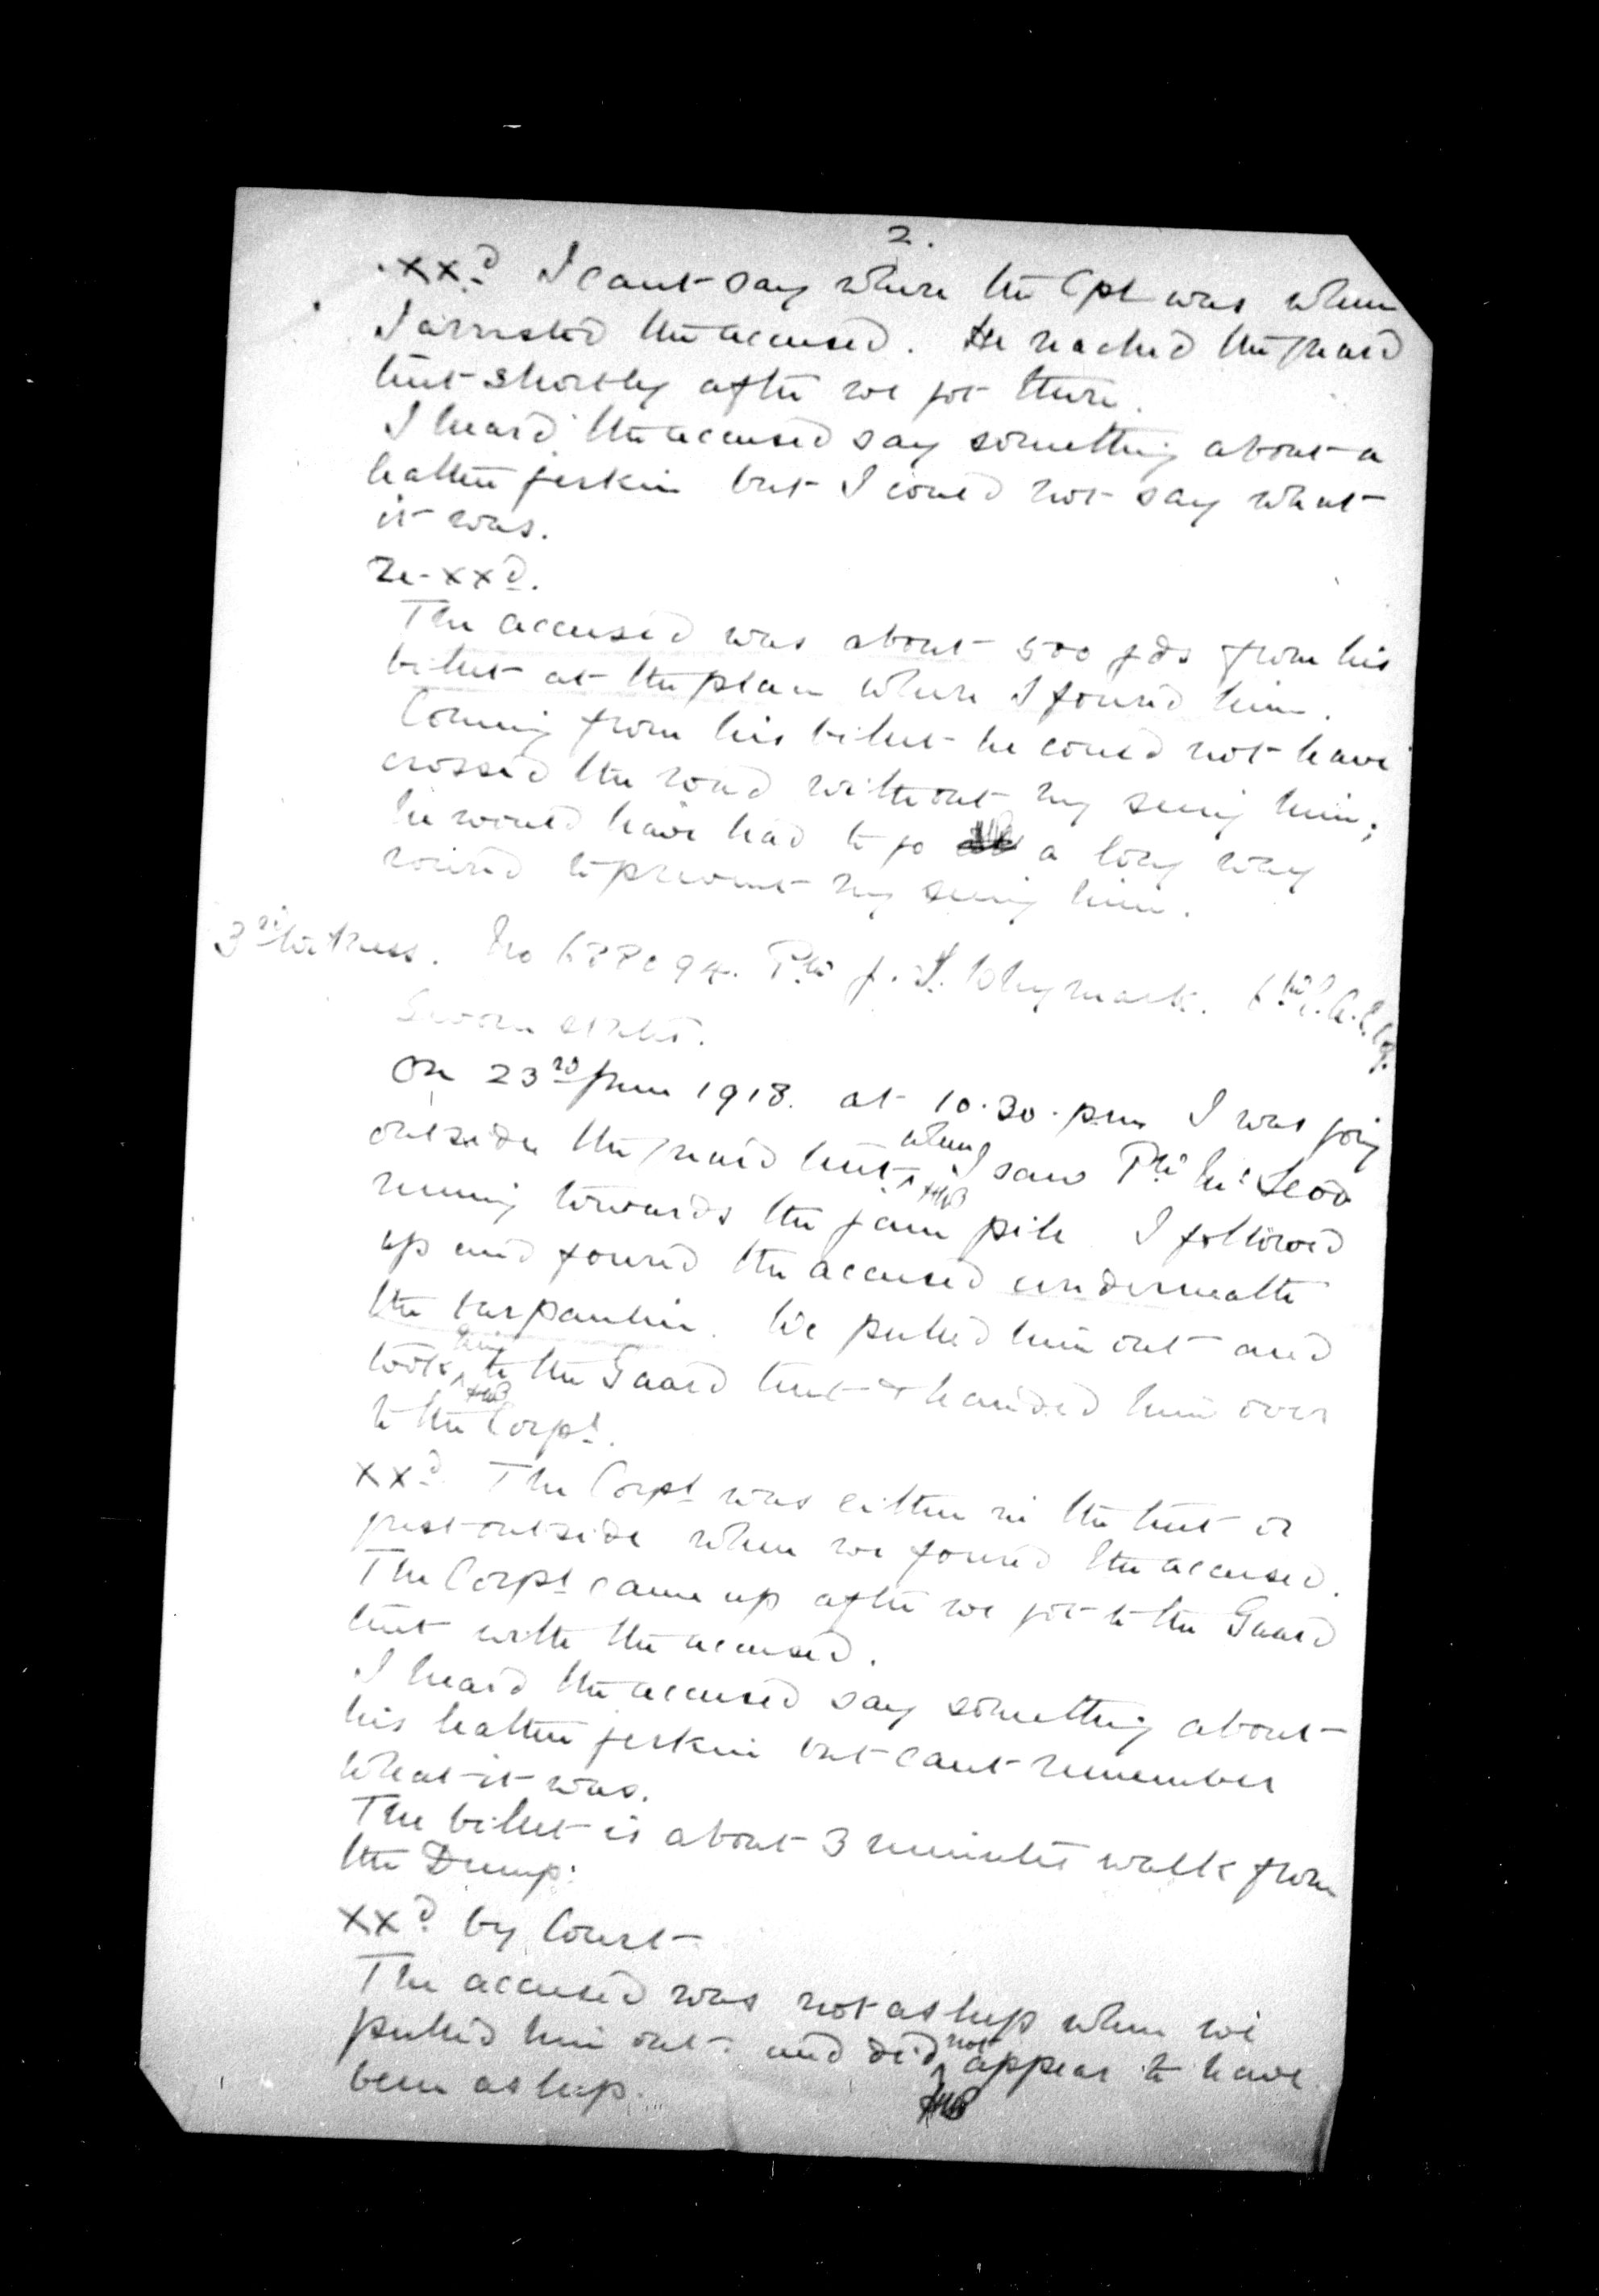 2.
XXd I cant say where the Cpl was when
I arrested the accused. He reached the guard
tent shortly after we got there.
I heard the accused say something about a
leather jerkin but I could not say what
it was.
Re-XXd.
The accused was about 500 yds from his
billet at the place where I found him.
Coming from his billet he could not have
crossed the road without my seeing him;
he would have had to go a long way
round to prevent my seeing him.
3rd Witness. No Pte J. Whymark.
Sworn states.
On 23rd June 1918. at 10.30. pm I was going
outside the guard tent when I saw Pte McLeod
running towards the jam pile I followed
up and found the accused underneath
the tarpaulin. We pulled him out and
took him to the Guard tent & handed him over
to the Corpl.
XXd The Corpl was either in the tent or
just outside when we found the accused.
The Corpl came up after we got to the Guard
tent with the accused.
I heard the accused say something about
his leather jerkin but cant remember
what it was.
The billet is about 3 minutes walk from
the Dump.
XXd by Court
The accused was not asleep when we
pulled him out and did not appear to have
been asleep.